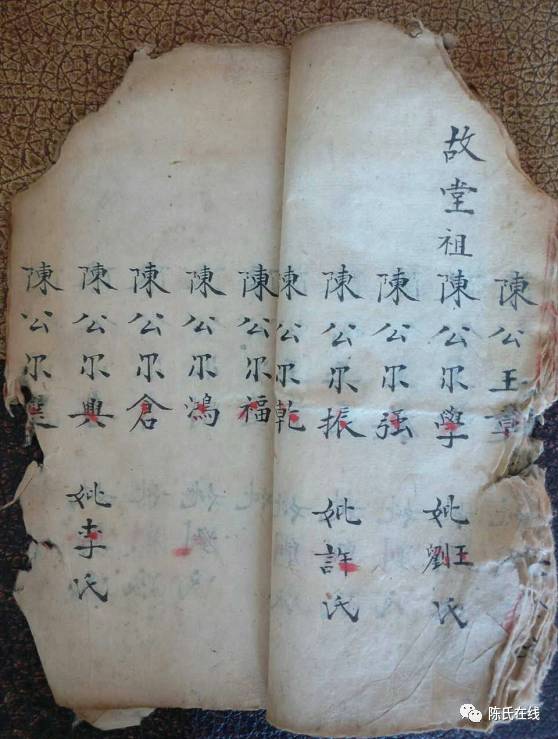 陳公王章
故堂祖陳公尔學 妣劉王氏
陳公尔强
陳公尔振 妣許氏
陳公尔乾
陳公尔福
陳公尔鴻
陳公尔倉
陳公尔興 妣李氏
陳公尔
陈氏在线